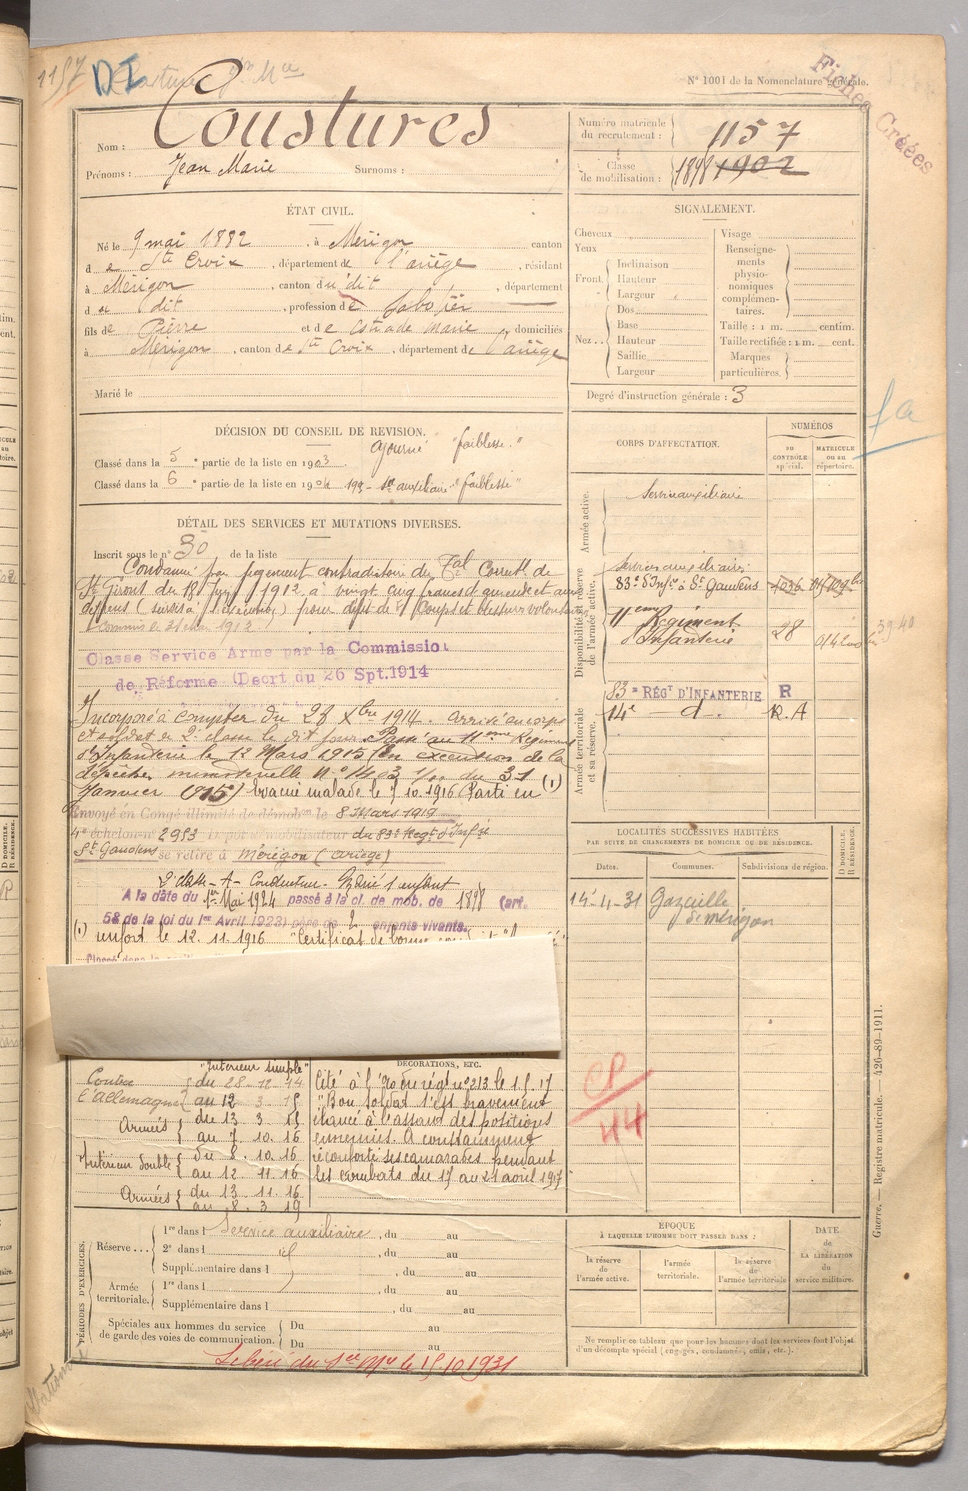 1157 DI
N° 1001 de la Nomenclature générale.
Fiches Créées
Nom : Coustures
Prénoms : Jean Marie Surnoms :
Numéro matricule du recrutement : 1157
Classe de mobilisation : 1898 1902
ÉTAT CIVIL.
Né le 9 mai 1882, à Mérigon canton
de Ste Croix, département de l'ariège, résidant
à Mérigon, canton du dit, département
du dit, profession de
fils de Pierre et de Estrade Marie domiciliés
à Mérigon, canton de Ste Croix, département de l'ariège
Marié le
SIGNALEMENT.
Cheveux
Yeux
Front Inclinaison
Hauteur
Largeur
Nez Dos
Base
Hauteur
Saillie
Largeur
Visage
Renseignements physionomiques complémentaires.
Taille : 1 m. centim.
Taille rectifiée : 1 m. cent.
Marques particulières.
Degré d'instruction générale : 3
DÉCISION DU CONSEIL DE REVISION.
Classé dans la 5e partie de la liste en 1903 ajourné "faiblesse."
Classé dans la 6e partie de la liste en 1904 auxiliaire "faiblesse"
DÉTAIL DES SERVICES ET MUTATIONS DIVERSES.
Inscrit sous le n° 30 de la liste
Condamné par jugement contradictoire du Tal Correctl de
St Girons du 18 1912, à vingt cinq francs d'amende et aux
dépens (sursis à ) pour délit de coups et blessures volontaires
commis le 1912
Classe Service Armé par la Commission
de Réforme (Decrt du 26 Spt.1914
Incorporé à compter du 28 Xbre 1914. arrivé au corps
et soldat de 2e classe le dit jour. Passé au 11eme Régiment
d'Infanterie le 12 Mars 1915 (en exécution de la
dépêche ministerielle N° du 31
Janvier 1915) Evacué malade le 7.10.1916 Parti en (1)
Envoyé en Congé illimité de démobon le 8 Mars 1919
4e échelon n° 2953 Dépôt démobilisateur du 83e Regt d'Infie
St Gaudens se retire à Mérigon (Ariège)
A la date du 1er Mai 1924 passé à la cl. de mob. de 1898 (art.
58 de la loi du 1er Avril 1923) père de 2 enfants vivants.
(1) renfort le 12.11.1916 "Certificat de bonne
CORPS D'AFFECTATION.
NUMÉROS
AU CONTRÔLE spécial.
MATRICULE OU AU répertoire.
Armée active.
Service auxiliaire
Disponibilité et réserve de l'armée active.
Service auxiliaire
83e d'Infie à St Gaudens
11eme Régiment d'Infanterie 28
Armée territoriale et sa réserve.
83e RÉGt D'INFANTERIE R
14e d. R.A
LOCALITÉS SUCCESSIVES HABITÉES
PAR SUITE DE CHANGEMENTS DE DOMICILE OU DE RÉSIDENCE.
Dates. Communes. Subdivisions de région. D DOMICILE. R RÉSIDENCE.
14-4-31 Gazaille de Mérigon
CP
44
DÉCORATIONS, ETC.
Contre l'Allemagne
"Intérieur simple"
du 28-12-14
au 12 3 15
Armées du 13 3 15
au 7. 10. 16
Intérieur double du 8. 10. 16
au 12 11. 16
Armées du 13. 11. 16
au 8. 3. 19
Cité à l'Ordre du régt n° 213 le 1.5.17
"Bon soldat s'est bravement
élancé à l'assaut des positions
ennemies. A constamment
réconforté ses camarades pendant
les combats du 17 au 21 avril 1917"
PÉRIODES D'EXERCICES.
Réserve... 1re dans l Service auxiliaire, du au
2e dans l, du au
Supplémentaire dans l, du au
Armée territoriale. 1re dans l, du au
Supplémentaire dans l, du au
Spéciales aux hommes du service de garde des voies de communication. Du au
Du au
Libéré du sce Mre le 15 10 1931
ÉPOQUE
À LAQUELLE L'HOMME DOIT PASSER DANS :
la réserve de l'armée active.
l'armée territoriale.
la réserve de l'armée territoriale
DATE de LA LIBÉRATION du service militaire.
Ne remplir ce tableau que pour les hommes dont les services font l'objet
d'un décompte spécial (engagés, condamnés, omis, etc.).
Guerre. — Registre matricule. — 426-89-1911.